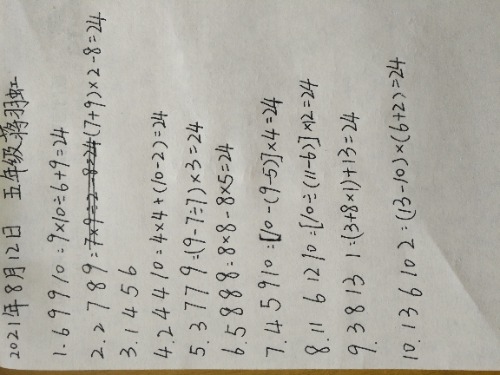 2021年8月12日 五年级蒋羽虹
1. 6 9 9 10 = 9×10÷6+9=24
2. 2 7 8 9 = 7×9÷2-8=24 (7+9)×2-8=24
3. 1 4 5 6
4. 2 4 4 10 = 4×4+(10-2)=24
5. 3 7 7 9 = (9-7÷7)×3=24
6. 5 8 8 8 = 8×8-8×5=24
7. 4 5 9 10 = [10-(9-5)]×4=24
8. 11 6 12 10 = [10÷(11-6)]×12=24
9. 3 8 13 1 = (3+8×1)+13=24
10. 13 6 10 2 = (13-10)×(6+2)=24